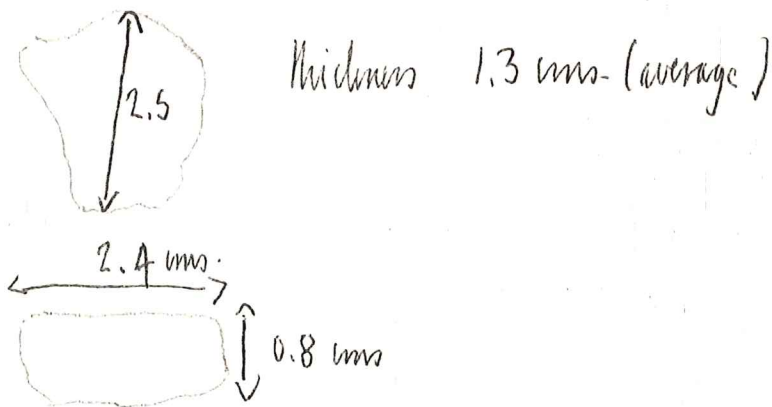 Thickness 1.3 cms. (average)
2.5
2.4 cms.
0.8 cms